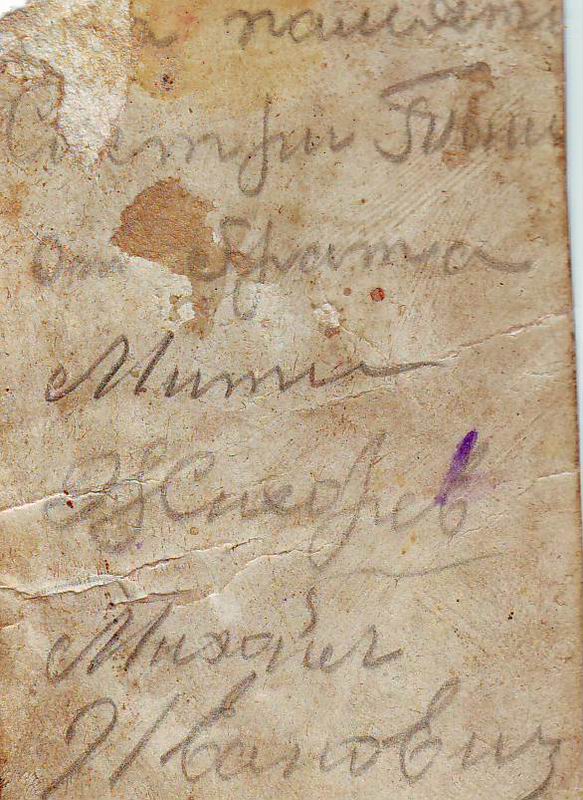 на память
Сестри Тони
от братка
Мити
Сихарев
Михаил
Иванович